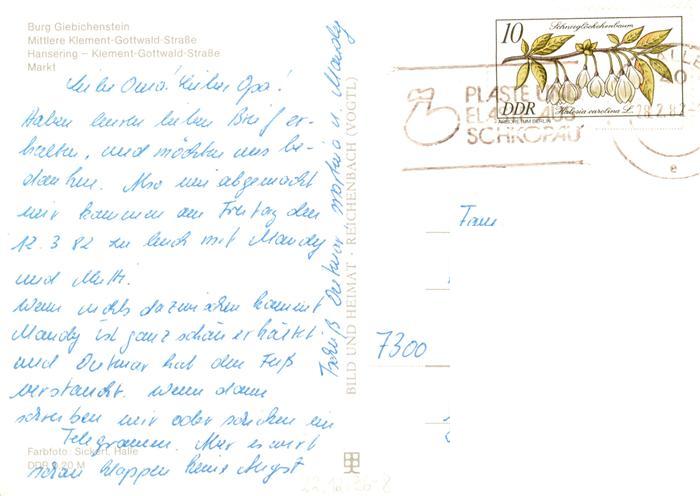 Burg Giebichenstein
Mittlere Klement-Gottwald-Straße
Hansering – Klement-Gottwald-Straße
Markt
Liebe Oma! Lieber Opa!
Haben euren lieben Brief er-
halten, und möchten uns be-
danken. Also wie abgemacht
wir kommen am Freitag den
12.3.82 zu euch mit Mandy
und Mutti.
Wenn nichts dazwischen kommt
Mandy ist ganz schön erkältet
und Dietmar hat den Fuß
verstaucht. Wenn dann
schreiben wir oder schicken ein
Telegramm. Aber es wird
schon klappen keine Angst
Tschüß Dietmar Martina u Mandy
Farbfoto: Sickert, Halle
DDR 0,20 M
BILD UND HEIMAT · REICHENBACH (VOGTL)
10
Schneeglöckchenbaum
DDR
Halesia carolina L.
ARBORETUM BERLIN
PLASTE UND
ELASTE AUS
SCHKOPAU
HALLE
e
Fam
7300